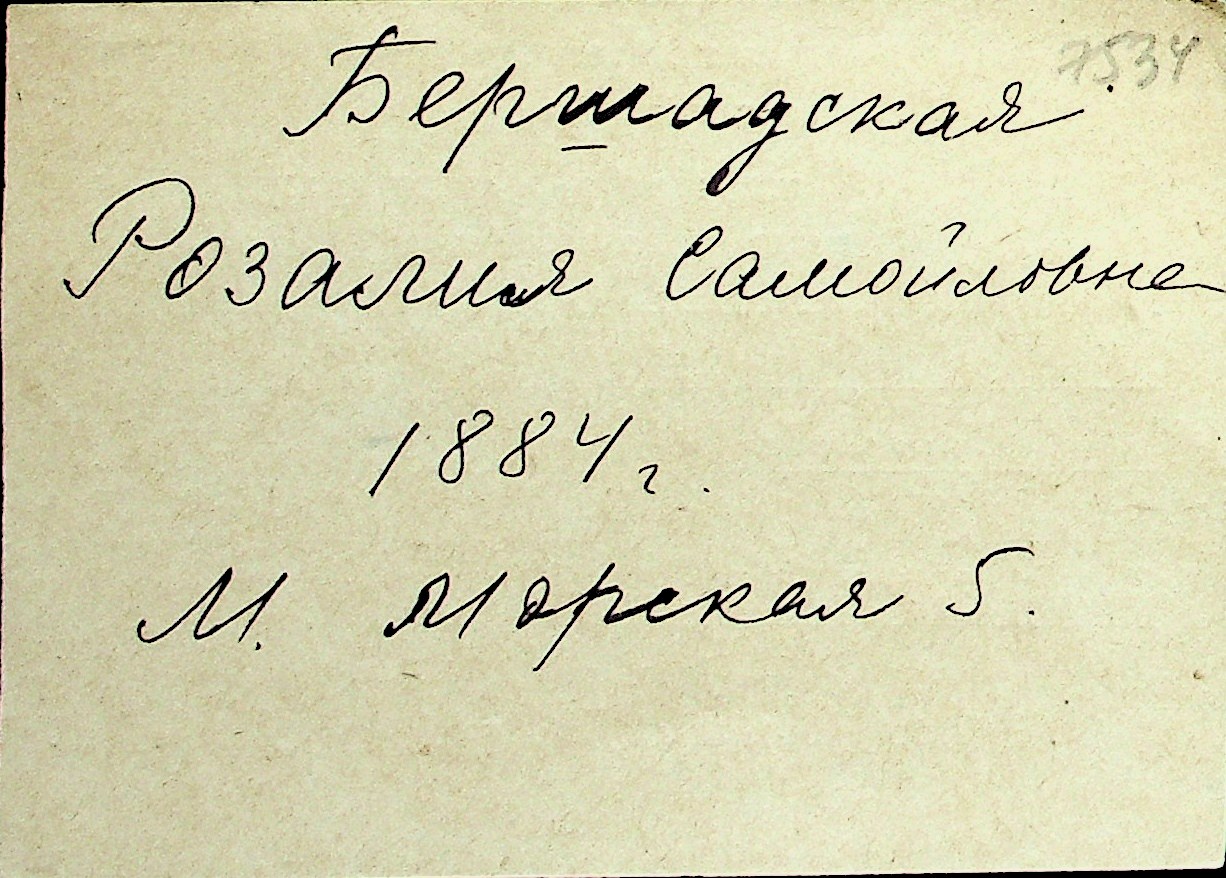 7534
Бершадская
Розалия Самойловна
1884 г.
М. Морская 5.